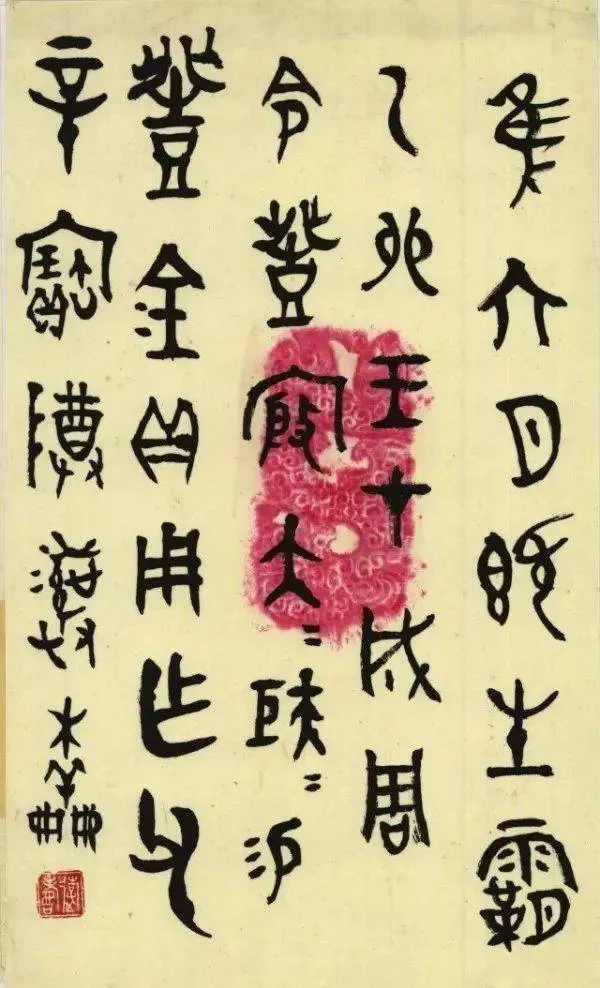 隹六月既生霸
乙卯王才成周
令豐殷大=矩=易
豐金貝用乍父
辛寶尊彝木羊冊冊